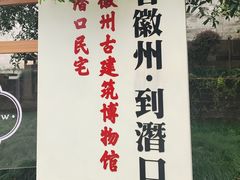 徽州·到潜口
徽州古建筑博物馆
潜口民宅